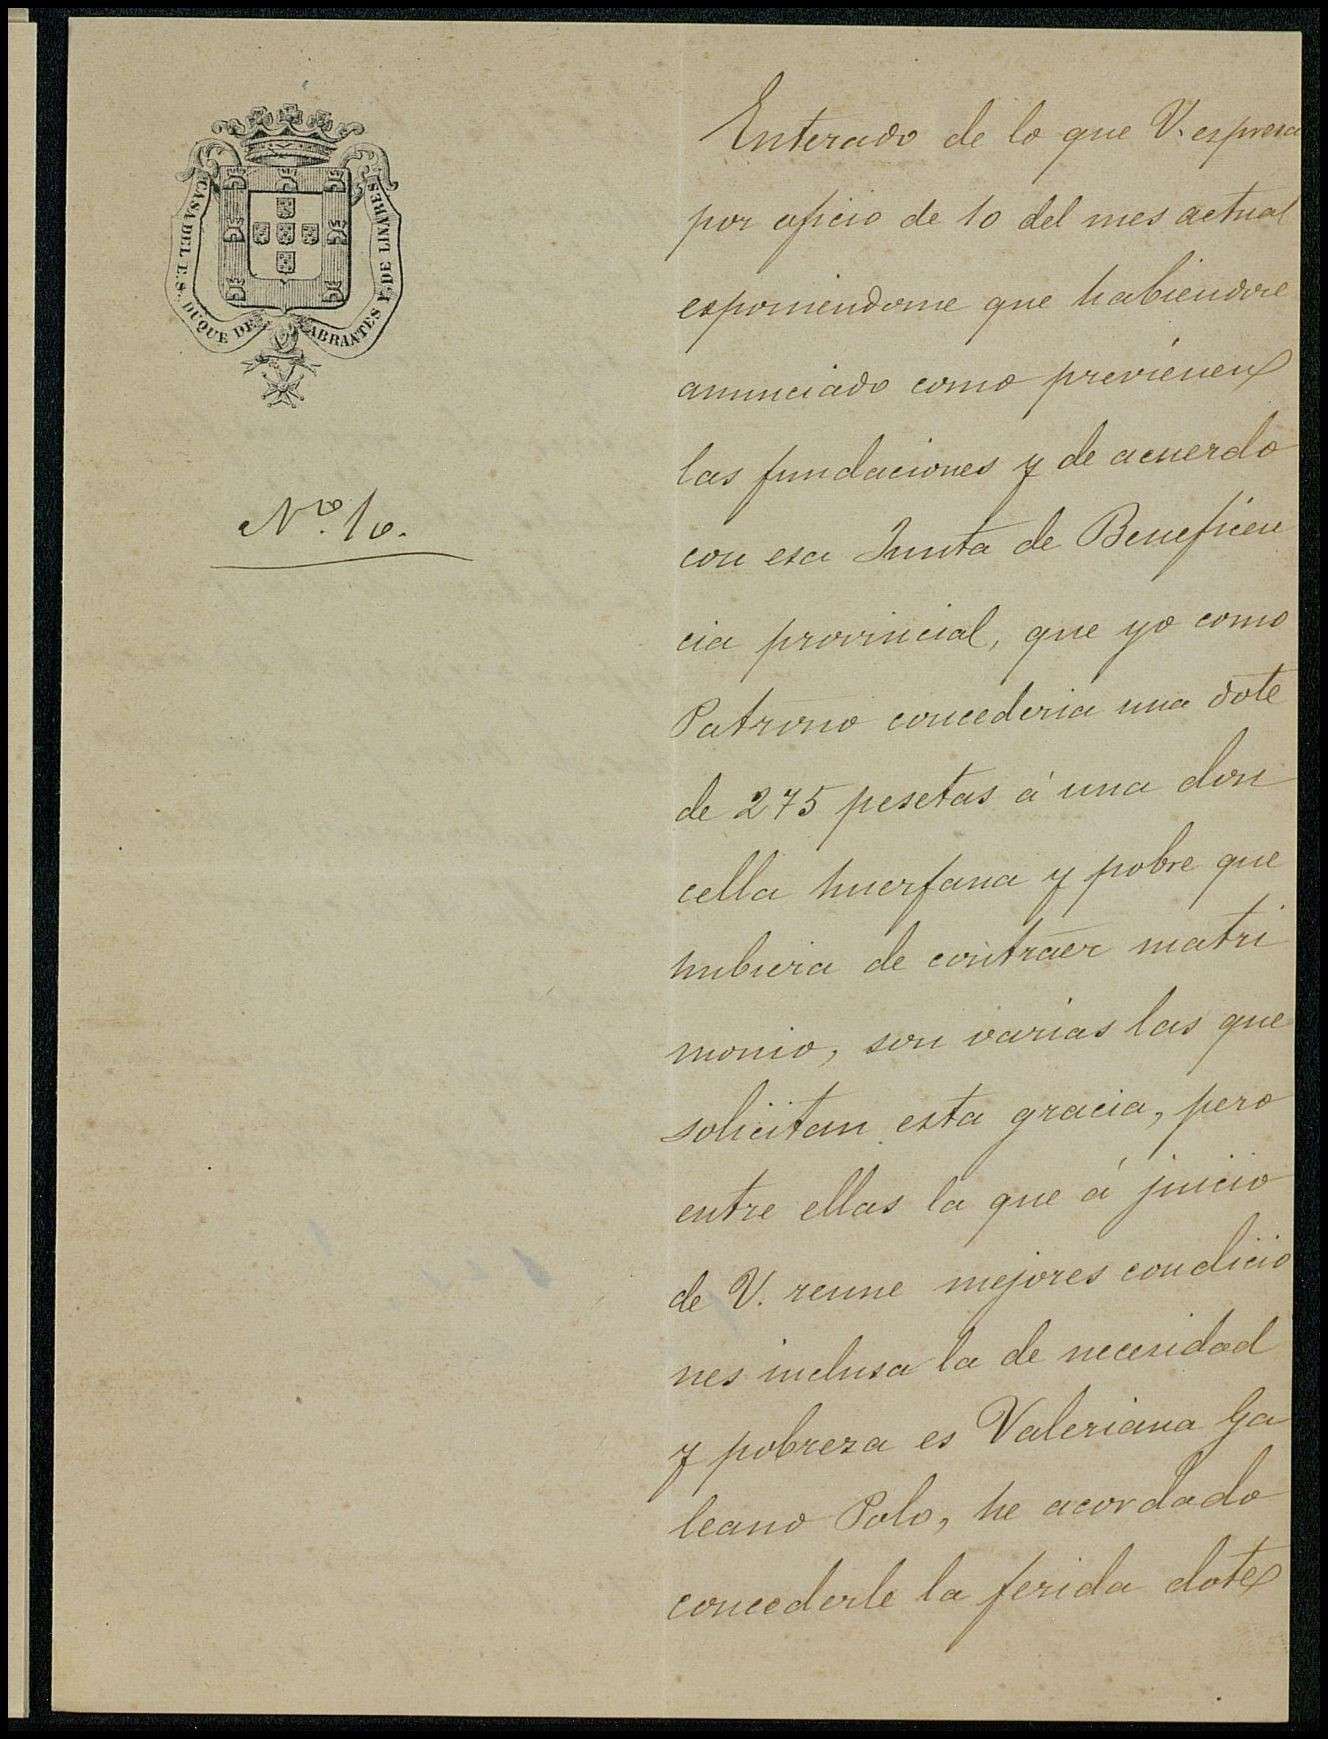 CASA DEL E. S. DUQUE DE ABRANTES Y DE LINARES
Nº. 10.
Enterado de lo que V. espresa
por oficio de 10 del mes actual
esponiendome que habiendose
anunciado como previenen
las fundaciones y de acuerdo
con esa Junta de Beneficen
cia provincial, que yo como
Patrono concederia una dote
de 275 pesetas á una don
cella huerfana y pobre que
hubiera de contraer matri
monio, son varias las que
solicitan esta gracia, pero
entre ellas la que á juicio
de V. reune mejores condicio
nes inclusa la de necesidad
y pobreza es Valeriana Ga
leano Polo, he acordado
concederle la ferida dote